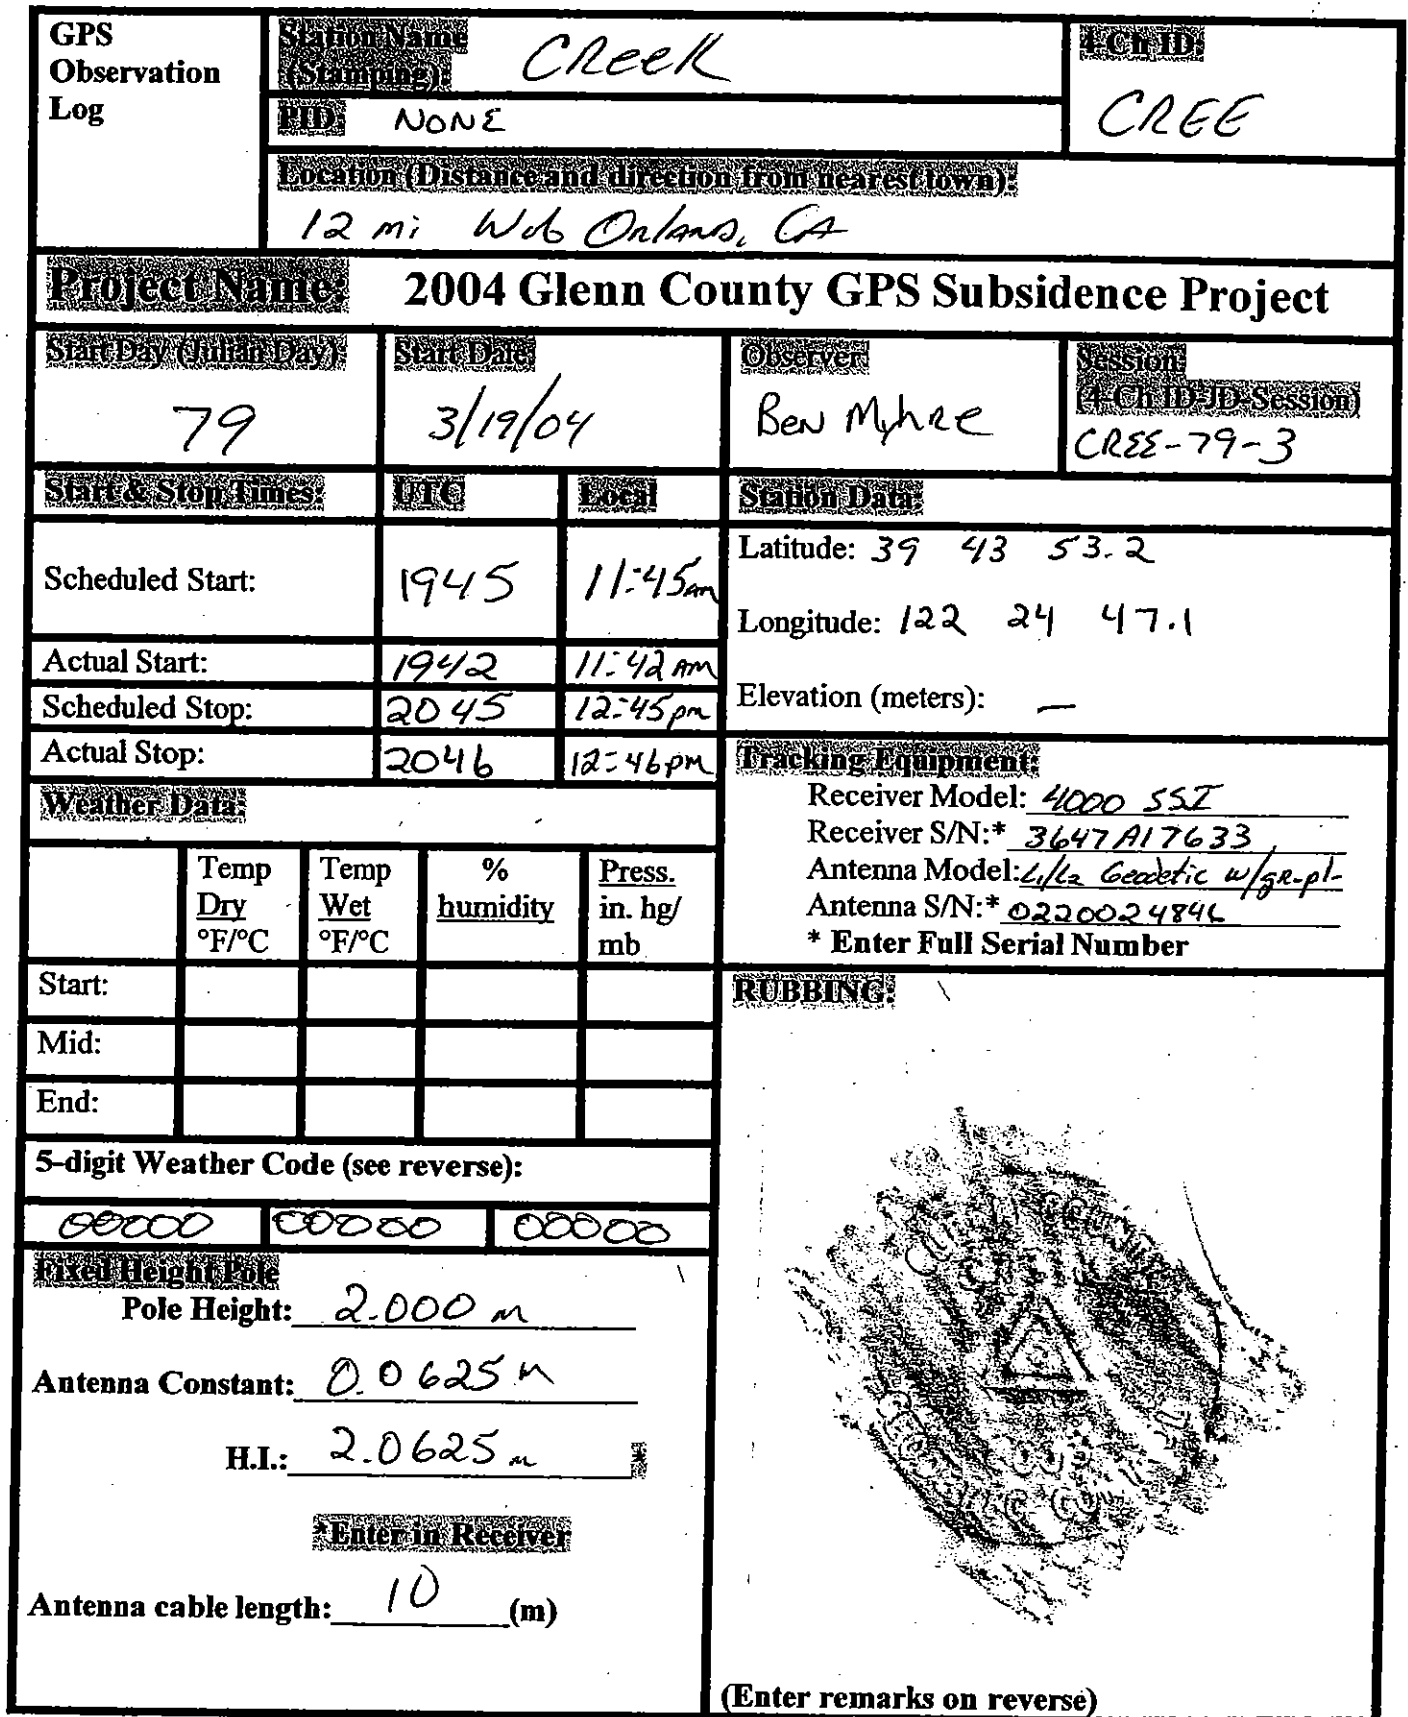 GPS
Observation
Log
Station Name
(Stamping):
Creek
4-Ch ID:
CREE
PID: NONE
Location (Distance and direction from nearest town):
12 mi W of Orland, CA
Project Name: 2004 Glenn County GPS Subsidence Project
Start Day (Julian Day):
79
Start Date:
3/19/04
Observer:
Ben Myhre
Session:
(4-Ch ID-JD-Session)
CREE-79-3
Start & Stop Times: UTC Local
Scheduled Start: 1945 11:45am
Actual Start: 1942 11:42 AM
Scheduled Stop: 2045 12:45pm
Actual Stop: 2046 12:46pm
Station Data:
Latitude: 39 43 53.2
Longitude: 122 24 47.1
Elevation (meters): —
Tracking Equipment:
Receiver Model: 4000 SSI
Receiver S/N:* 3647A17633
Antenna Model: L1/L2 Geodetic w/gr-pl-
Antenna S/N:*
* Enter Full Serial Number
Weather Data:
Temp
Dry
°F/°C
Temp
Wet
°F/°C
%
humidity
Press.
in. hg/
mb
Start:
Mid:
End:
5-digit Weather Code (see reverse):
00000 00000 00000
Fixed Height Pole
Pole Height: 2.000 m
Antenna Constant: 0.0625 m
H.I.: 2.0625 m *
*Enter in Receiver
Antenna cable length: 10 (m)
RUBBING:
(Enter remarks on reverse)